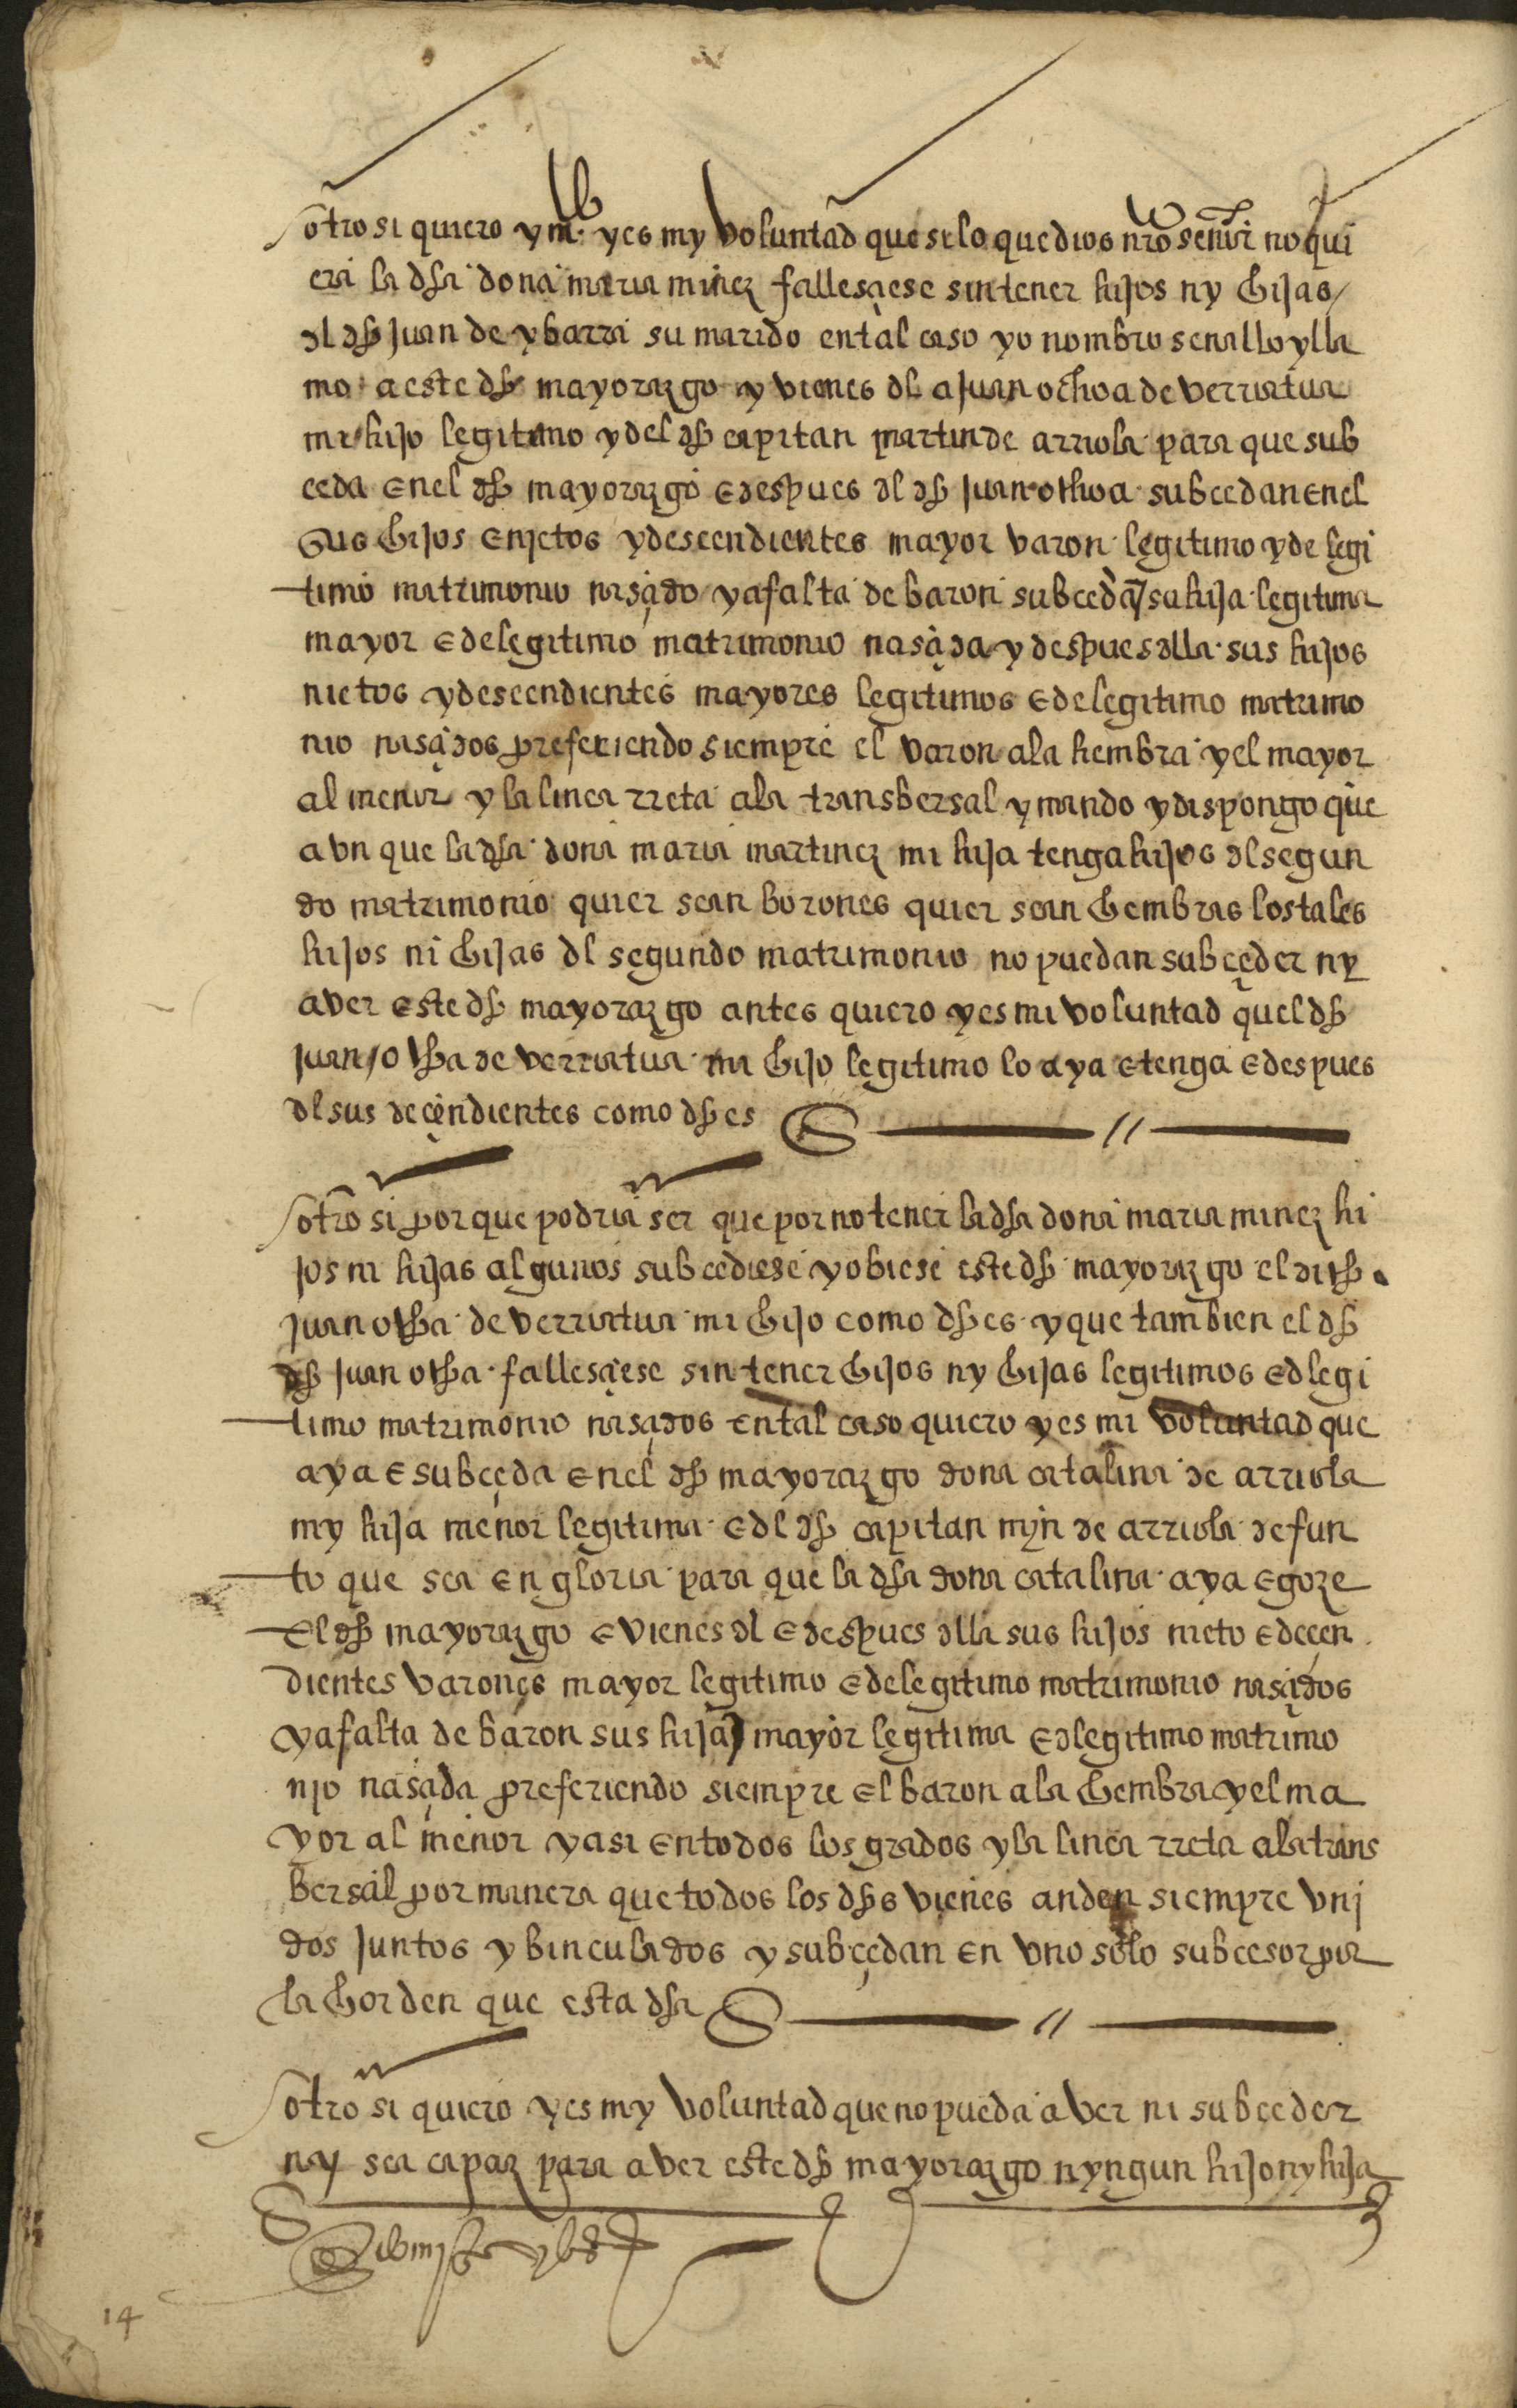 otro si quiero y m.do y es my voluntad que si lo que dios nro señor no qui
era la dha doña maria minez fallesçiese sin tener hijos ny hijas
del dho juan de ybarra su marido en tal caso yo nombro senallo y lla
mo a este dho mayorazgo y vienes del a juan ochoa de verriatua
mi hijo legitimo y del dho capitan martin de arriola para que sub
ceda en el dho mayorazgo e despues del dho juan ochoa subcedan en el
sus hijos e njetos y descendientes mayor varon legitimo y de legi
timo matrimonio nasçido y a falta de baron subçeda su hija legitima
mayor e de legitimo matrimonio nasçida y despues della sus hijos
nietos y descendientes mayores legitimos e de legitimo matrimo
nio nasçidos prefeciendo siempre el varon a la hembra y el mayor
al menor y la linea rreta a la transbersal y mando y dispongo que
avn que la dha doña maria martinez mi hija tenga hijos del segun
do matrimonio quier sean borones quier sean hembras los tales
hijos ni hijas del segundo matrimonio no puedan subçeder ny
aver este dho mayorazgo antes quiero y es mi voluntad quel dho
juan ochoa de verriatua mi hijo legitimo lo aya e tenga e despues
del sus deçendientes como dho es
otro si por que podria ser que por no tener la dha doña maria minez hi
jos ni hijas algunos subcediese y obiese este dho mayorazgo el dicho
juan ochoa de verriatua mi hijo como dho es y que tambien el dho
dho juan ochoa fallesçiese sin tener hijos ny hijas legitimos e de legi
timo matrimonio nasçidos en tal caso quiero y es mi voluntad que
aya e subçeda en el dho mayorazgo dona catalina de arriola
my hija menor legitima e del dho capitan myn de arriola defun
to que sea en gloria para que la dha dona catalina aya e goze
el dho mayorazgo e vienes del e despues della sus hijos nieto e deçen
dientes varones mayor legitimo e de legitimo matrimonio nasçidos
y a falta de baron sus hija mayor legitima e de legitimo matrimo
njo nasçida preferiendo siempre el baron a la hembra y el ma
yor al menor y asi en todos los grados y la linea rreta a la trans
bersal por manera que todos los dhos vienes anden siempre vnj
dos juntos y binculados y subçedan en vno solo subcesor por
la horden que esta dha
otro si quiero y es my voluntad que no pueda aver ni subçeder
ny sea capaz para aver este dho mayorazgo nyngun hijo ny hija
14